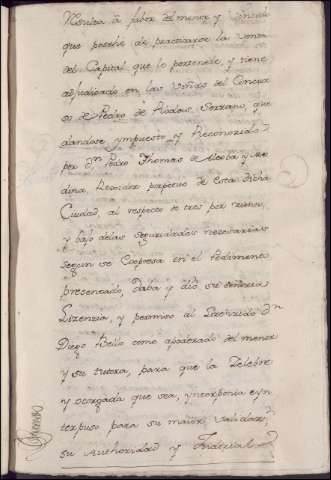 Resulta à fabor del menor y
que puede de practicarse la venta
del Capital que le pertenese, y tiene
adjudicado en las viñas del Concur
so de Pedro de Rodas Serrano, que
dandose ympuesto, y Reconosido
por Dn Pedro Thomas de
Rexidor perpetuo de esta dicha
Ciudad, al respecto de tres por ciento,
y bajo delas seguridades nesesarias
segun se Expresa en el Pedimento
presentado, daba y dió su señoria
Lizenzia, y permiso al Referido Dn
Diego Bello como apoderado del menor
y su tutora, para que la Zelebre
y otorgada que sea, ynterponia e yn
terpuso para su maior validaz.n
su Authoridad y Judicial